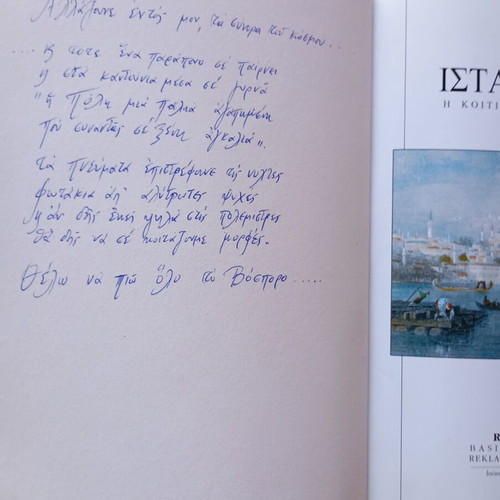 Αλλάζουνε εντός μου, τα σύνορα του κόσμου..
.... κι τοτε ένα παράπονο σέ παίρνει
κι στά καντούνια μέσα σέ γυρνά
"ἡ Πόλη μιά παλιά αγαπημένη
πού συναντάς σέ ξένη αγκαλιά".
τα πνεύματα επιστρέφουνε τις νύχτες
φωτάκια από αλύτρωτες ψυχές
κι άν δής εκεί ψηλά στίς πολεμίστρες
θά δής νά σέ κοιτάζουνε μορφές.
Θέλω νά πιώ όλο το Βόσπορο.....
ΙΣΤΑ
Η ΚΟΙΤΙ
R
BASI
REKLA